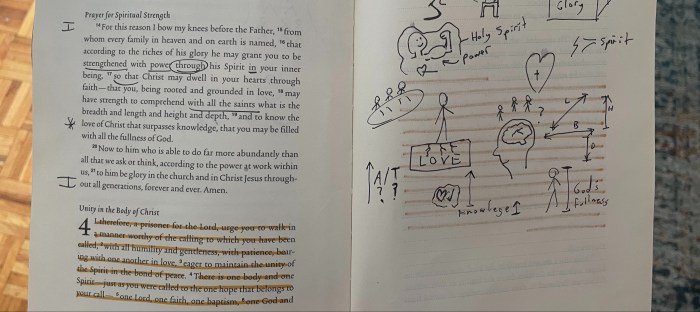 Prayer for Spiritual Strength
14 For this reason I bow my knees before the Father, 15 from
whom every family in heaven and on earth is named, 16 that
according to the riches of his glory he may grant you to be
strengthened with power through his Spirit in your inner
being, 17 so that Christ may dwell in your hearts through
faith—that you, being rooted and grounded in love, 18 may
have strength to comprehend with all the saints what is the
breadth and length and height and depth, 19 and to know the
love of Christ that surpasses knowledge, that you may be filled
with all the fullness of God.
20 Now to him who is able to do far more abundantly than
all that we ask or think, according to the power at work within
us, 21 to him be glory in the church and in Christ Jesus through-
out all generations, forever and ever. Amen.
Unity in the Body of Christ
4 I therefore, a prisoner for the Lord, urge you to walk in
a manner worthy of the calling to which you have been
called, 2 with all humility and gentleness, with patience, bear-
ing with one another in love, 3 eager to maintain the unity of
the Spirit in the bond of peace. 4 There is one body and one
Spirit—just as you were called to the one hope that belongs to
your call— 5 one Lord, one faith, one baptism, 6 one God and
Glory
Holy Spirit
power
Spirit
?
L
H
B
D
LOVE
A/T
? ?
knowlege
God's
fullness